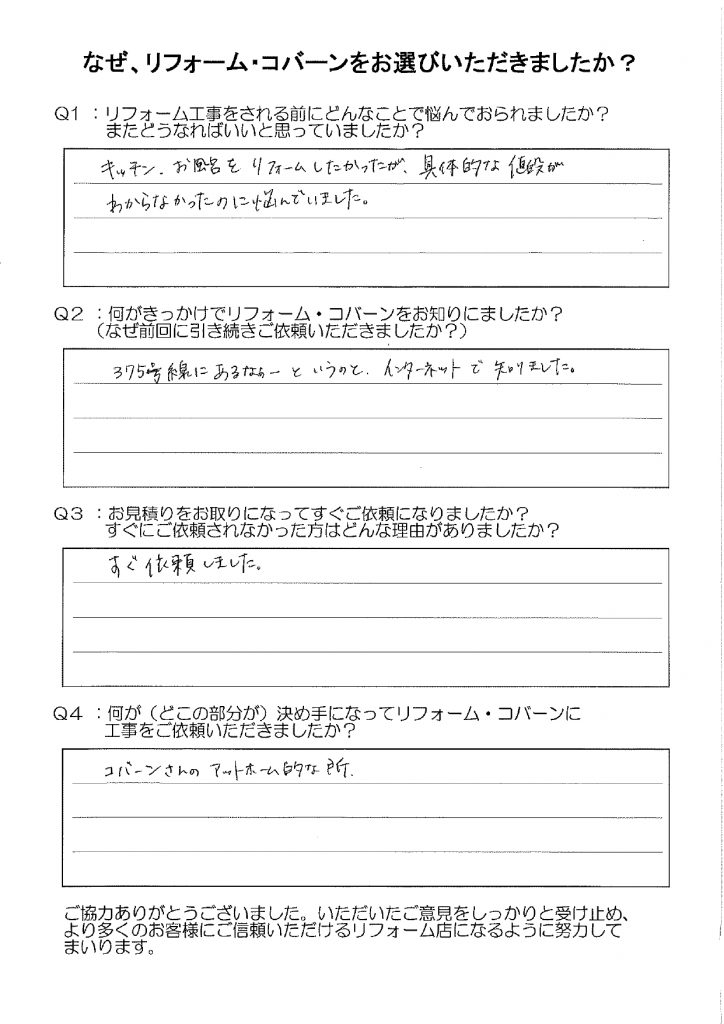 なぜ、リフォーム・コバーンをお選びいただきましたか？
Q1 ：リフォーム工事をされる前にどんなことで悩んでおられましたか？
またどうなればいいと思っていましたか？
キッチン、お風呂をリフォームしたかったが、具体的な値段が
わからなかったのに悩んでいました。
Q2 ：何がきっかけでリフォーム・コバーンをお知りにましたか？
（なぜ前回に引き続きご依頼いただきましたか？）
375号線にあるなぁーというのと、インターネットで知りました。
Q3 ：お見積りをお取りになってすぐご依頼になりましたか？
すぐにご依頼されなかった方はどんな理由がありましたか？
すぐ依頼しました。
Q4 ：何が（どこの部分が）決め手になってリフォーム・コバーンに
工事をご依頼いただきましたか？
コバーンさんのアットホーム的な所。
ご協力ありがとうございました。いただいたご意見をしっかりと受け止め、
より多くのお客様にご信頼いただけるリフォーム店になるように努力して
まいります。